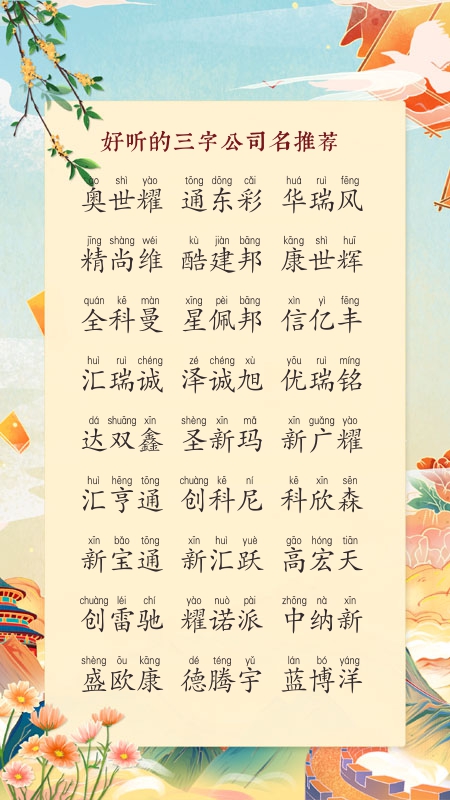 好听的三字公司名推荐
ào shì yào tōng dōng cǎi huá ruì fēng
奥世耀 通东彩 华瑞风
jīng shàng wéi kù jiàn bāng kāng shì huī
精尚维 酷建邦 康世辉
quán kē màn xīng pèi bāng xìn yì fēng
全科曼 星佩邦 信亿丰
huì ruì chéng zé chéng xù yōu ruì míng
汇瑞诚 泽诚旭 优瑞铭
dá shuāng xīn shèng xīn mǎ xīn guǎng yào
达双鑫 圣新玛 新广耀
huì hēng tōng chuàng kē ní kē xīn sēn
汇亨通 创科尼 科欣森
xīn bǎo tōng xīn huì yuè gāo hóng tiān
新宝通 新汇跃 高宏天
chuàng léi chí yào nuò pài zhōng nà xīn
创雷驰 耀诺派 中纳新
shèng ōu kāng dé téng yǔ lán bó yáng
盛欧康 德腾宇 蓝博洋